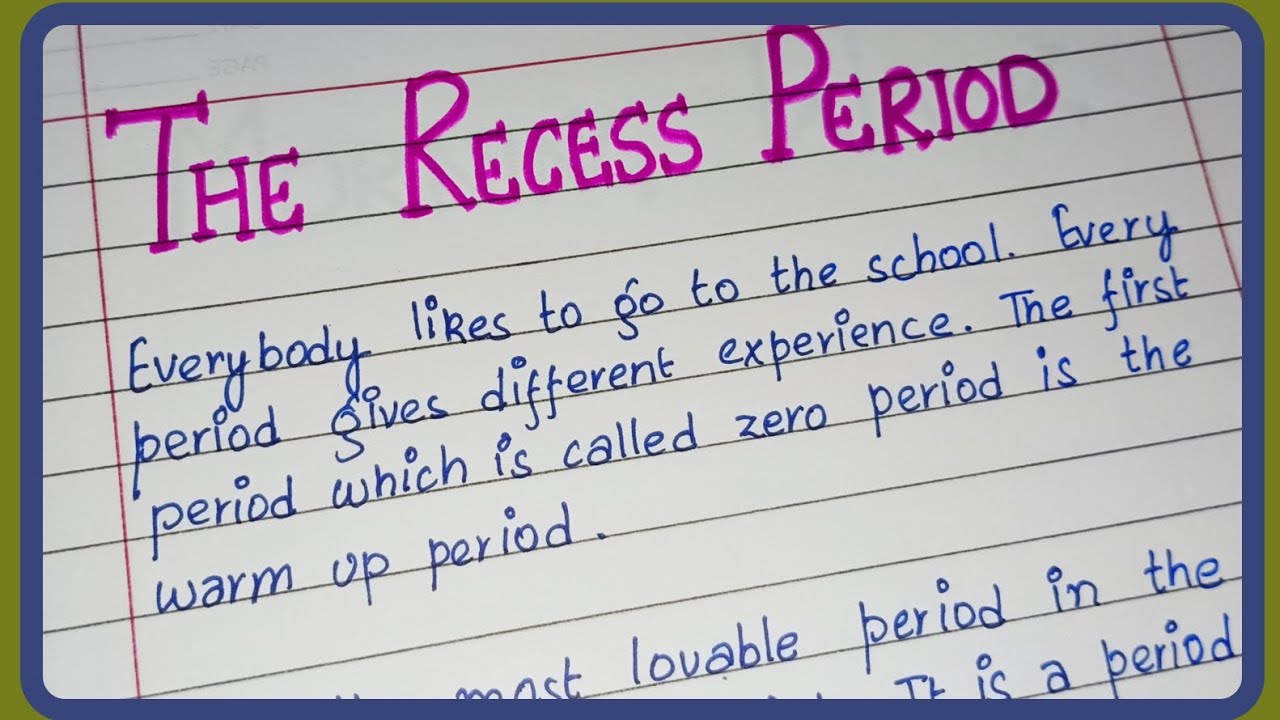 THE RECESS PERIOD
Everybody likes to go to the school. Every
period gives different experience. The first
period which is called zero period is the
warm up period.
most lovable period in the
It is a period